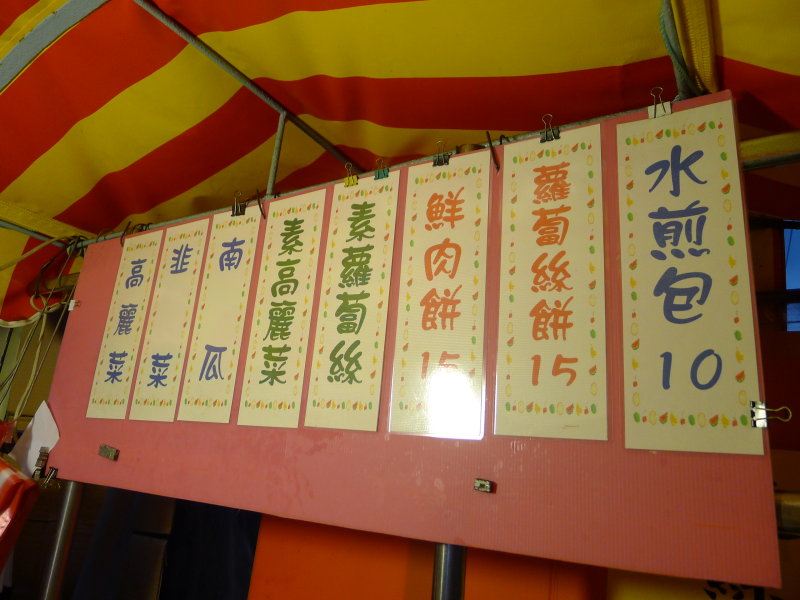 水煎包10
蘿蔔絲餅15
鮮肉餅15
素蘿蔔絲
素高麗菜
南瓜
韭菜
高麗菜